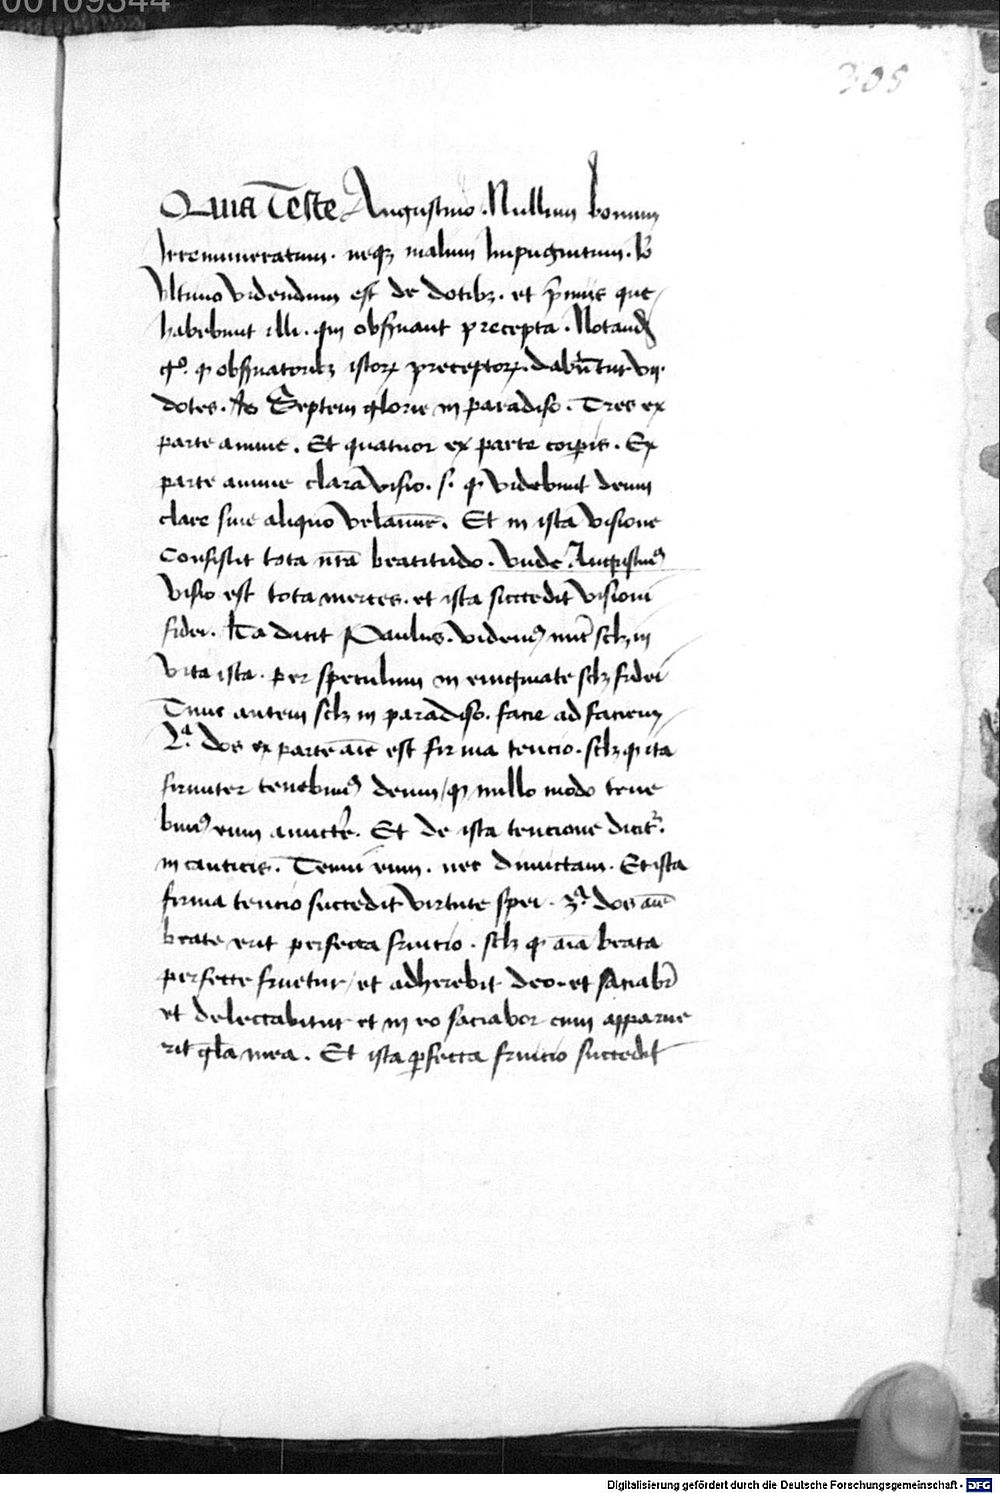 00109344
305
Quia Teste Augustino . Nullum bonum
Irremuneratum . neqꝫ malum Impugnitum . Iō
Vltimo videndum est de dotibꝫ . et p̄miis que
habebunt illi . qui obẜuant precepta . Notandꝫ
qº . ꝙ obẜuatoribꝫ istoꝝ preceptoꝝ . dabūtur vij .
dotes . Septem glorie in paradiso . Tres ex
parte anime . Et quatuor ex parte corpis . Ex
parte anime clara visio . s . ꝙ videbunt deum
clare sine aliquo velamīe . Et in ista visione
Consistit tota nr̄a beatitudo . Vnde Augustinꝰ
Visio est tota merces . et ista succedit visioni
fidei . Ita dicit Paulus . videmꝰ nūc sclꝫ in
vita ista . per speculum in enigmate sclꝫ fidei
Tunc autem sclꝫ in paradiso . facie ad faciem
2ª . dos ex parte aīe est firma tencio . sclꝫ ꝙ ita
firmiter tenebimꝰ deum / ꝙ nullo modo tene
bimꝰ eum amictē . Et de ista tencione dicitᷣ .
in canticis . Tenui eum . nec dimictam . Et ista
firma tencio succedit virtute spei . 3ª . dos aīe
beate erit perfecta fruitio . sclꝫ ꝙ aīa beata
perfecte fruetur / et adherebit deo . et saciabr̄
et delectabitur et in eo saciabor cum apparue
rit gl̄a mea . Et ista ꝑfecta fruicio succedit
Digitalisierung gefördert durch die Deutsche Forschungsgemeinschaft - DFG